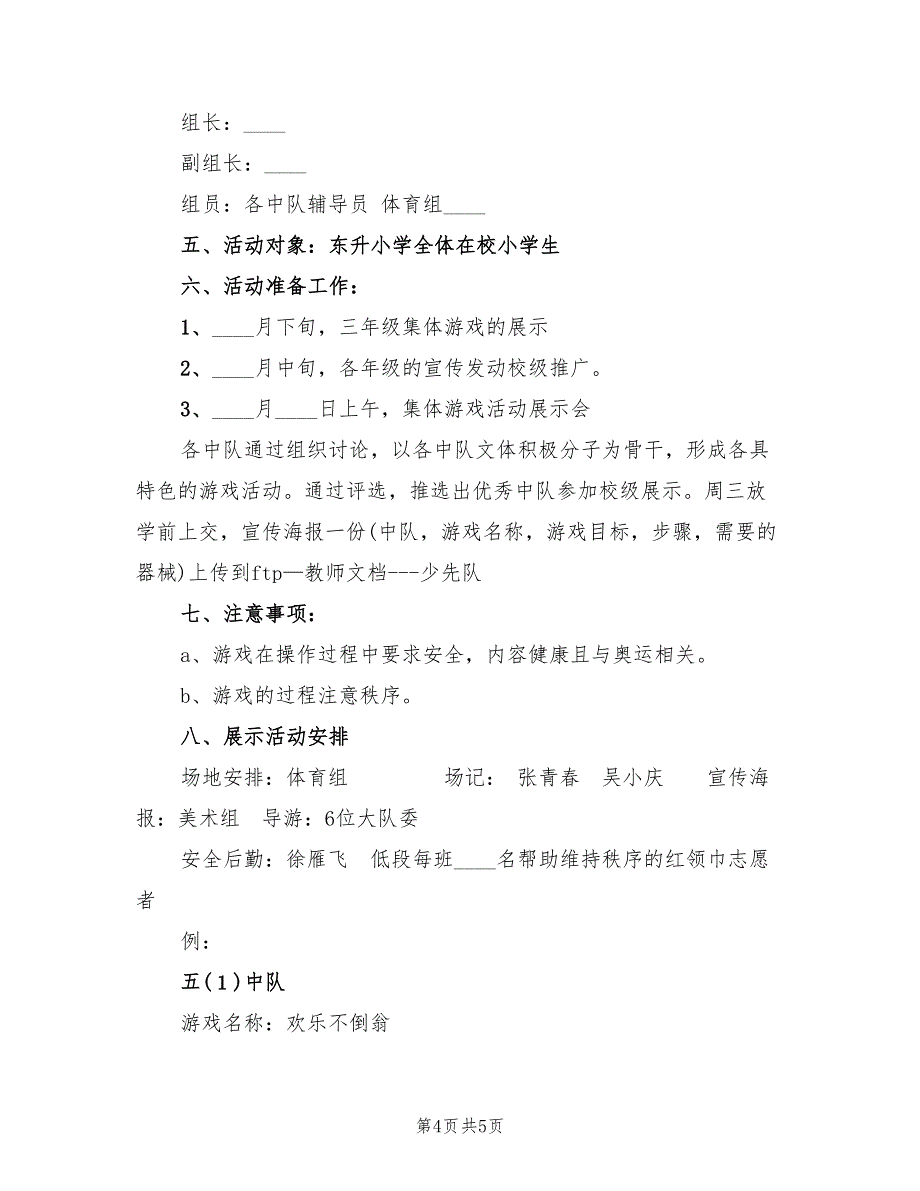 组长：____
副组长：____
组员：各中队辅导员 体育组____
五、活动对象：东升小学全体在校小学生
六、活动准备工作：
1、____月下旬，三年级集体游戏的展示
2、____月中旬，各年级的宣传发动校级推广。
3、____月____日上午，集体游戏活动展示会
各中队通过组织讨论，以各中队文体积极分子为骨干，形成各具
特色的游戏活动。通过评选，推选出优秀中队参加校级展示。周三放
学前上交，宣传海报一份(中队，游戏名称，游戏目标，步骤，需要的
器械)上传到ftp—教师文档---少先队
七、注意事项：
a、游戏在操作过程中要求安全，内容健康且与奥运相关。
b、游戏的过程注意秩序。
八、展示活动安排
场地安排：体育组 场记： 张青春 吴小庆 宣传海
报：美术组 导游：6位大队委
安全后勤：徐雁飞 低段每班____名帮助维持秩序的红领巾志愿
者
例：
五(1)中队
游戏名称：欢乐不倒翁
第4页共5页